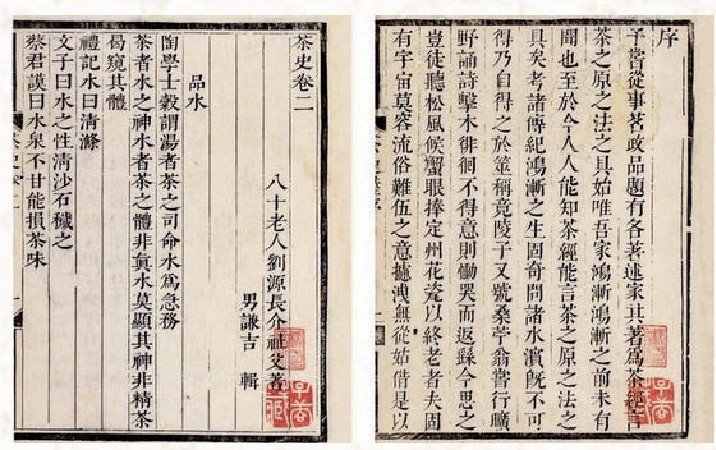 序
予嘗從事茗政品題有各著述家其著爲茶經言
茶之原之法之具始唯吾家鴻漸鴻漸之前未有
聞也至於今人人能知茶經能言茶之原之法之
具矣考諸傳紀鴻漸之生固奇問諸水濵旣不可
得乃自得之於筮稱竟陵子又號桑苧翁嘗行曠
野誦詩擊木徘徊不得意則慟哭而返繇今思之
豈徒聽松風候蟹眼捧定州花瓷以終老者夫固
有宇宙莫容流俗難伍之意攄洩無從姑借是以
茶史卷二
八十老人劉源長介祉父著
男謙吉 輯
品水
陶學士穀謂湯者茶之司命水爲急務
茶者水之神水者茶之體非眞水莫顯其神非精茶
曷窺其體
禮記水曰清滌
文子曰水之性清沙石穢之
蔡君謨曰水泉不甘能損茶味